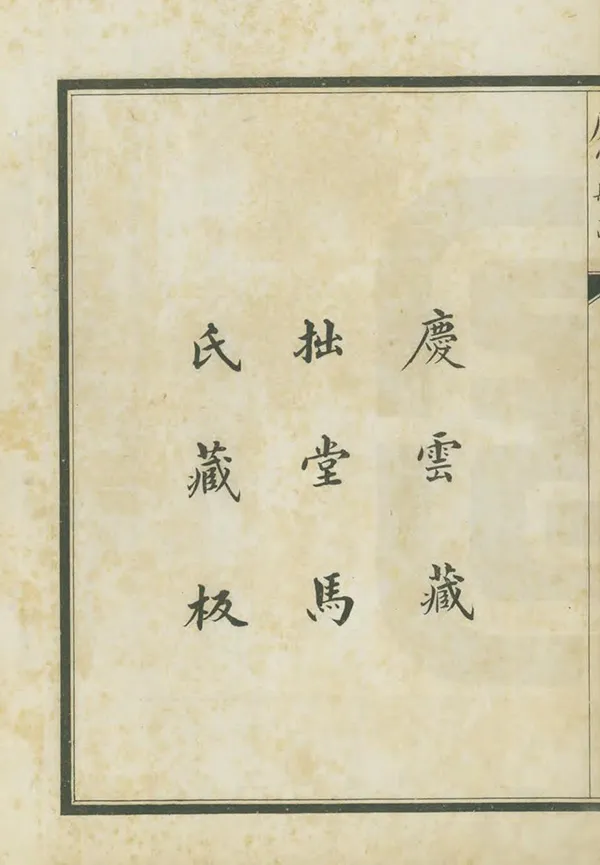 慶雲藏
拙堂馬
氏藏板